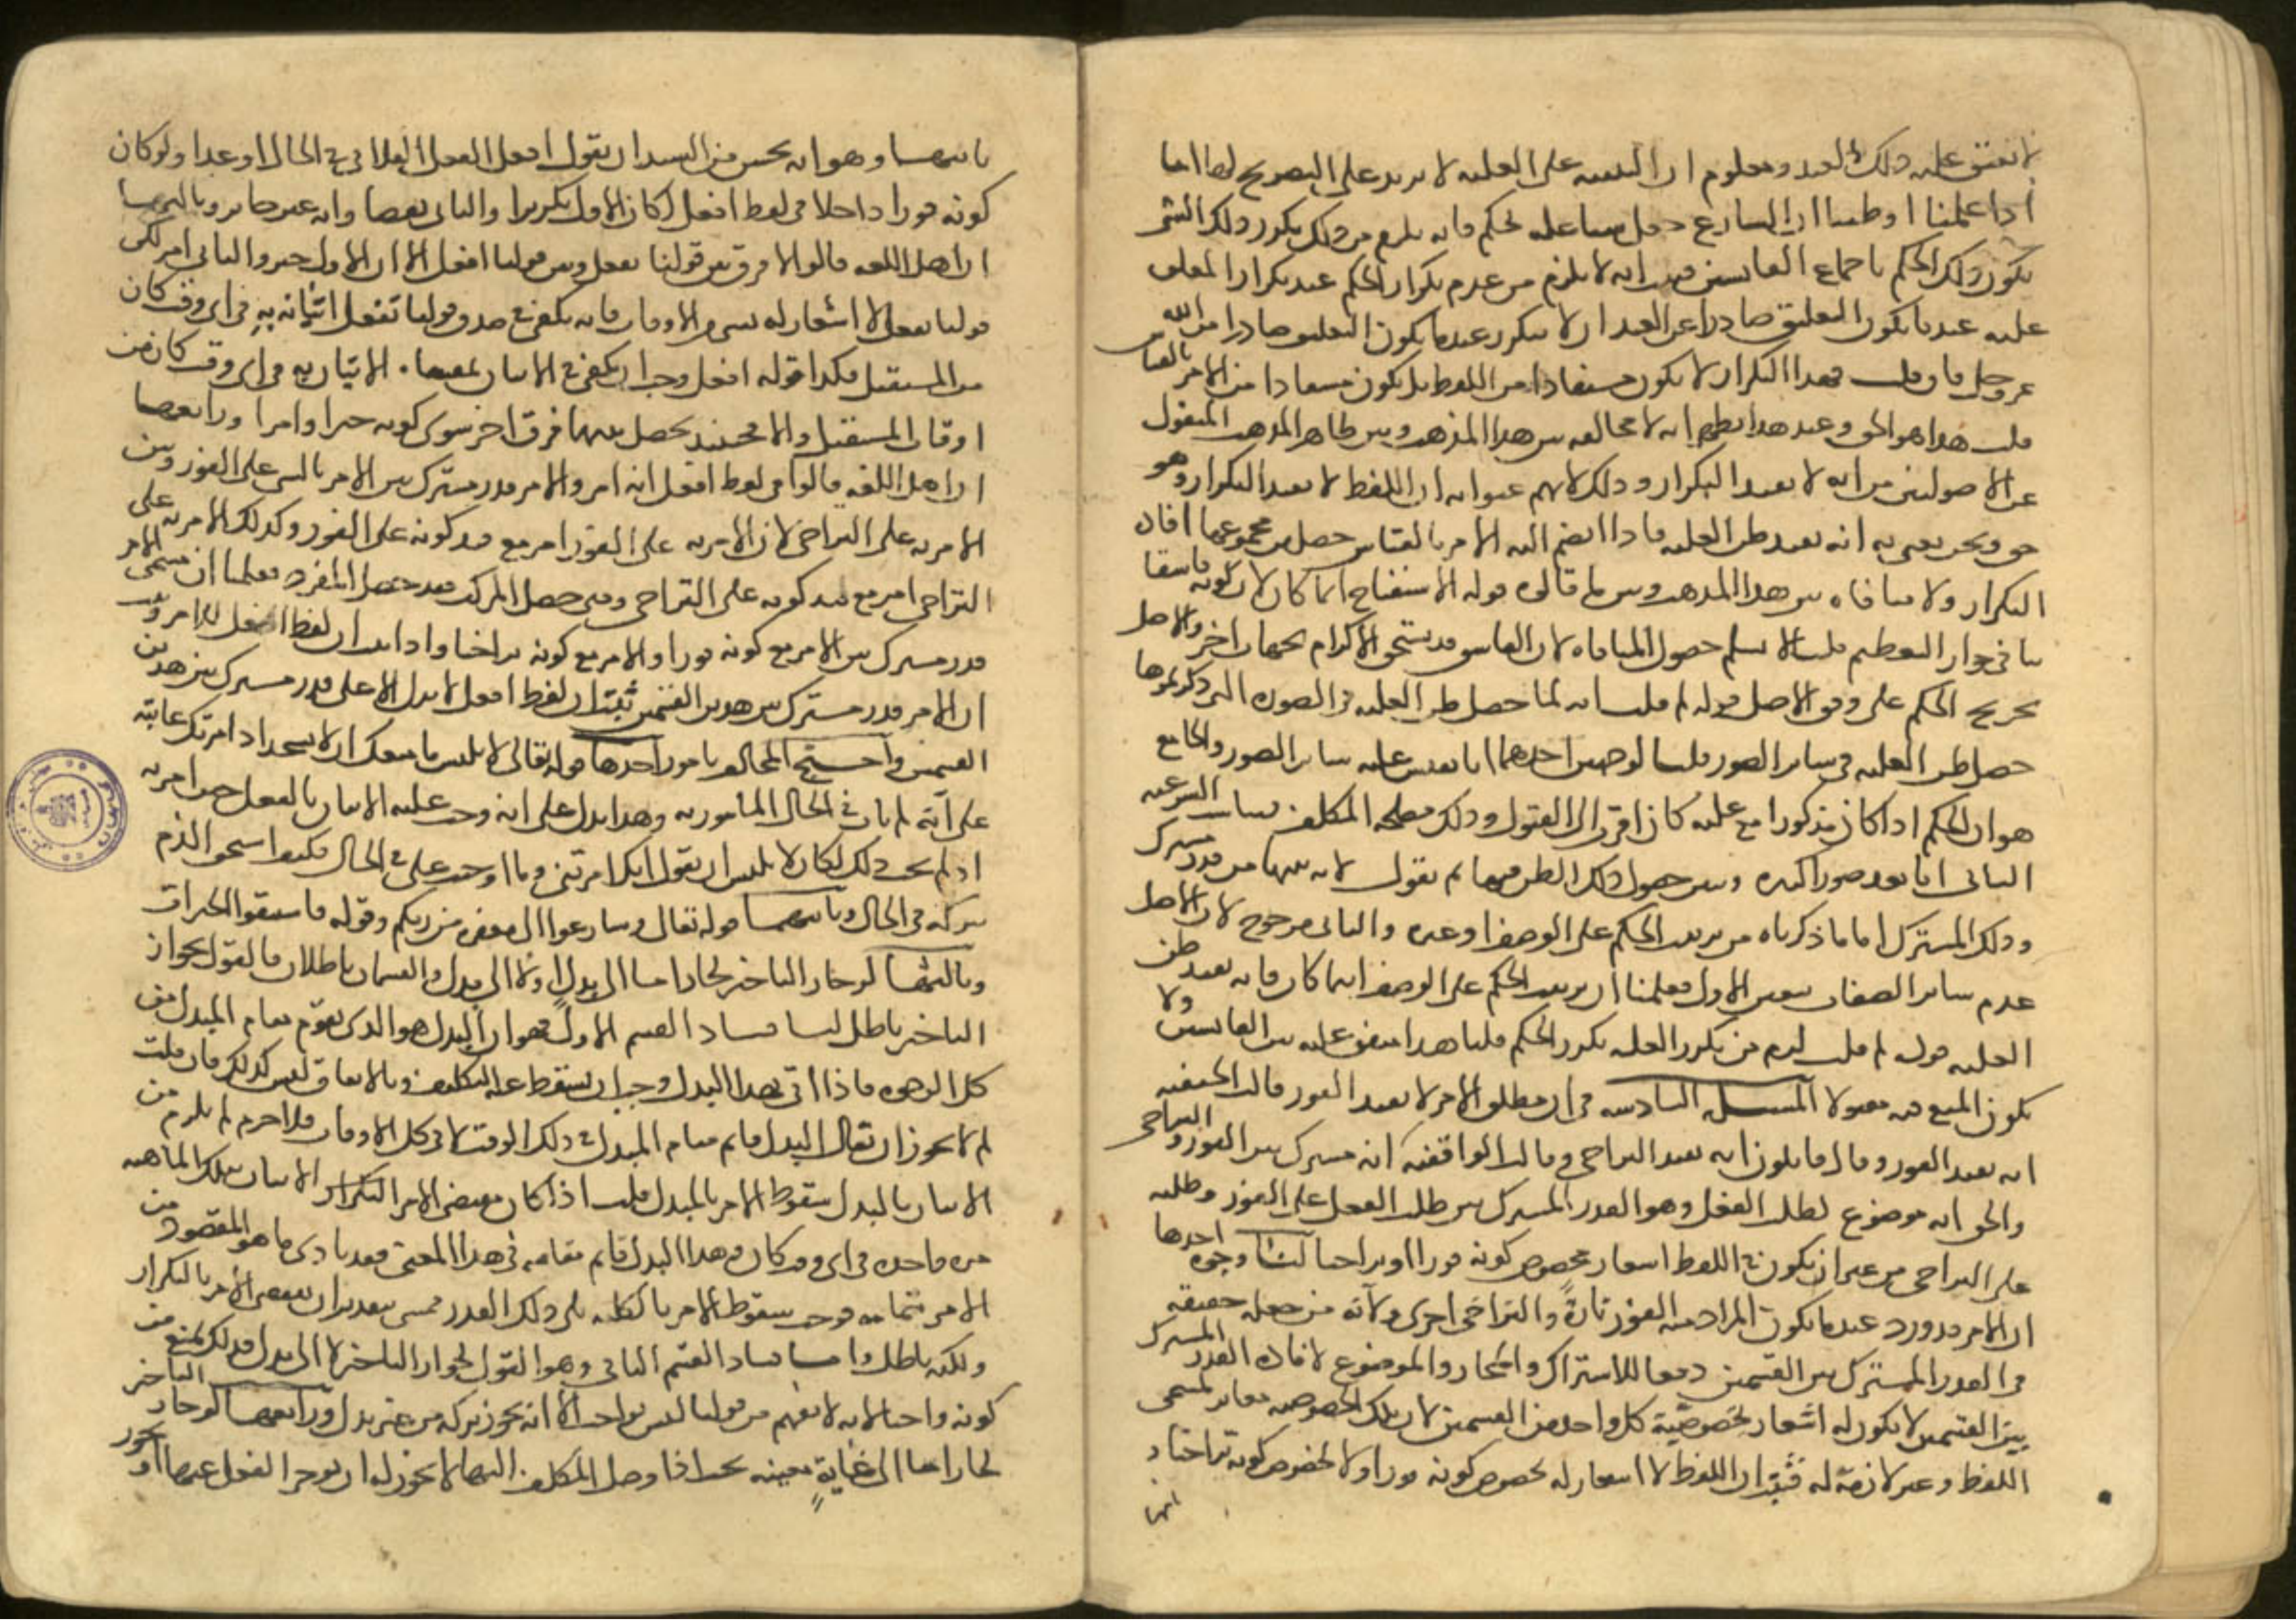 لا يعتق عليه ذلك العبد ومعلوم ان التنبيه على العلية لا يزيد على التصريح بها اما
اذا علمنا او ظننا ان الشارع جعل شيئا علة لحكم فانه يلزم من ذلك تكرر ذلك الشي
تكرر ذلك الحكم باجماع القايسين فثبت انه لا يلزم من عدم تكرار الحكم عند تكرار المعلق
عليه عند ما يكون التعليق صادرا عن العبد ان لا يتكرر عند ما يكون التعليق صادرا من الله
عز وجل فان قلت فهذا التكرار لا يكون مستفادا من اللفظ بل يكون مستفادا من الامر بالقياس
قلت هذا هو الحق وعند هذا يظهر انه لا مخالفة بين هذا المذهب وبين ظاهر المذهب المنقول
عن الاصوليين من انه لا يفيد التكرار وذلك لانهم عنوا به ان اللفظ لا يفيد التكرار وهو
حق ونحن نعني به انه يفيد ظن العلية فاذا انضم اليه الامر بالقياس حصل من مجموعهما افادة
التكرار ولا منافاة بين هذا المذهب وبين ما قالوه قوله الاستقباح انما كان لان كونه فاسقا
ينافي جواز التعظيم قلنا لا نسلم حصول المنافاة لان الفاسق قد يستحق الاكرام بجهات اخر والاصل
تخريج الحكم على وفق الاصل قوله لم قلت انه لما حصل ظن العلية في الصورة التي ذكرتموها
حصل ظن العلية في ساير الصور قلنا لوجهين احدهما انا نقيس عليه ساير الصور والجامع
هو ان الحكم اذا كان مذكورا مع علته كان اقرب الى القبول وذلك مصلحة المكلف فيناسب الشرعية
الثاني انا نعد صورا كثيرة ونبين حصول ذلك الظن فيها ثم نقول لا بد بينها من قدر مشترك
وذلك المشترك اما ما ذكرناه من ترتيب الحكم على الوصف او غيره والثاني مرجوح لان الاصل
عدم ساير الصفات فتعين الاول فعلمنا ان ترتيب الحكم على الوصف اينما كان فانه يفيد ظن
العلية قوله لم قلت لزم من تكرر العلة تكرر الحكم قلنا هذا متفق عليه بين القايسين ولا
يكون المنع فيه مقبولا المسئلة السادسة في ان مطلق الامر لا يفيد الفور قالت الحنفية
انه يفيد الفور وقال قايلون انه يفيد التراخي وقالت الواقفية انه مشترك بين الفور والتراخي
والحق انه موضوع لطلب الفعل وهو القدر المشترك بين طلب الفعل على الفور وطلبه
على التراخي من غير ان يكون في اللفظ اشعار بخصوص كونه فورا او تراخيا لنا وجوه احدها
ان الامر قد ورد عند ما يكون المراد منه الفور تارة والتراخي اخرى ولا بد من جعله حقيقة
في القدر المشترك بين القسمين دفعا للاشتراك والمجاز والموضوع لافادة القدر المشترك
بين القسمين لا يكون له اشعار بخصوصية كل واحد من القسمين لان تلك الخصوصية مغايرة لمسمى
اللفظ وغير لازمة له فثبت ان اللفظ لا اشعار له بخصوص كونه فورا ولا بخصوص كونه تراخيا و
ثانيها
ثانيها وهو انه يحسن من السيد ان يقول افعل الفعل الفلاني في الحال او غدا ولو كان
كونه فورا داخلا في لفظ افعل لكان الاول تكريرا والثاني نقضا وانه غير جايز وثالثها
ان اهل اللغة قالوا لا فرق بين قولنا يفعل وبين قولنا افعل الا ان الاول خبر والثاني امر لكن
قولنا يفعل لا اشعار له بشي من الاوقات فانه يكفي في صدق قولنا تفعل اتيانه به في اي وقت كان
من المستقبل فكذا قوله افعل وجب ان يكفي في الاتيان بمقتضاه الاتيان به في اي وقت كان من
اوقات المستقبل والا فحينئذ يحصل بينهما فرق اخر سوى كونه خبرا وامرا ورابعها
ان اهل اللغة قالوا في لفظ افعل انه امر والامر قدر مشترك بين الامر بالشي على الفور وبين
الامر به على التراخي لان الامر به على الفور امر مع قيد كونه على الفور وكذلك الامر به على
التراخي امر مع قيد كونه على التراخي ومتى حصل المركب فقد حصل المفرد فعلمنا ان مسمى الامر
قدر مشترك بين الامر مع كونه فورا والامر مع كونه تراخيا واذا ثبت ان لفظ افعل للامر وثبت
ان الامر قدر مشترك بين هذين القسمين ثبت ان لفظ افعل لا يدل الا على قدر مشترك بين هذين
القسمين واحتج المخالف بامور احدها قوله تعالى لابليس ما منعك ان لا تسجد اذ امرتك عاتبه
على انه لم يات في الحال المامور به وهذا يدل على انه وجب عليه الاتيان بالفعل حين امر به
اذ لم يجب ذلك لكان لابليس ان يقول انك امرتني وما اوجبت علي في الحال فكيف استحق الذم
بتركه في الحال وثانيها قوله تعالى وسارعوا الى مغفرة من ربكم وقوله فاستبقوا الخيرات
وثالثها لو جاز التاخير لجاز اما الى بدل او لا الى بدل والقسمان باطلان فالقول بجواز
التاخير باطل بيان فساد القسم الاول فهو ان البدل هو الذي يقوم مقام المبدل من
كل الوجوه فاذا اتى بهذا البدل وجب ان يسقط عنه التكليف وبالاتفاق ليس كذلك فان قلت
لم لا يجوز ان يقال البدل قايم مقام المبدل في ذلك الوقت لا في كل الاوقات فلا جرم لم يلزم من
الاتيان بالبدل سقوط الامر بالمبدل قلت اذا كان مقتضى الامر التكرار الاتيان بتلك الماهية
مرة واحدة في اي وقت كان وهذا البدل قايم مقامه في هذا المعنى فقد تادى ما هو المقصود من
الامر بتمامه فوجب سقوط الامر بالكلية بلى ذلك العذر يمشي بتقدير ان يقتضي الامر بالتكرار
ولكنه باطل واما فساد القسم الثاني وهو القول بجواز التاخير لا الى بدل فذلك يمنع من
كونه واجبا لانه لا يفهم من قولنا ليس بواجب الا انه يجوز تركه من غير بدل ورابعها لو جاز التاخير
لجاز اما الى غاية معينة بحيث اذا وصل المكلف اليها لا يجوز له ان يوخر الفعل عنها او يجوز